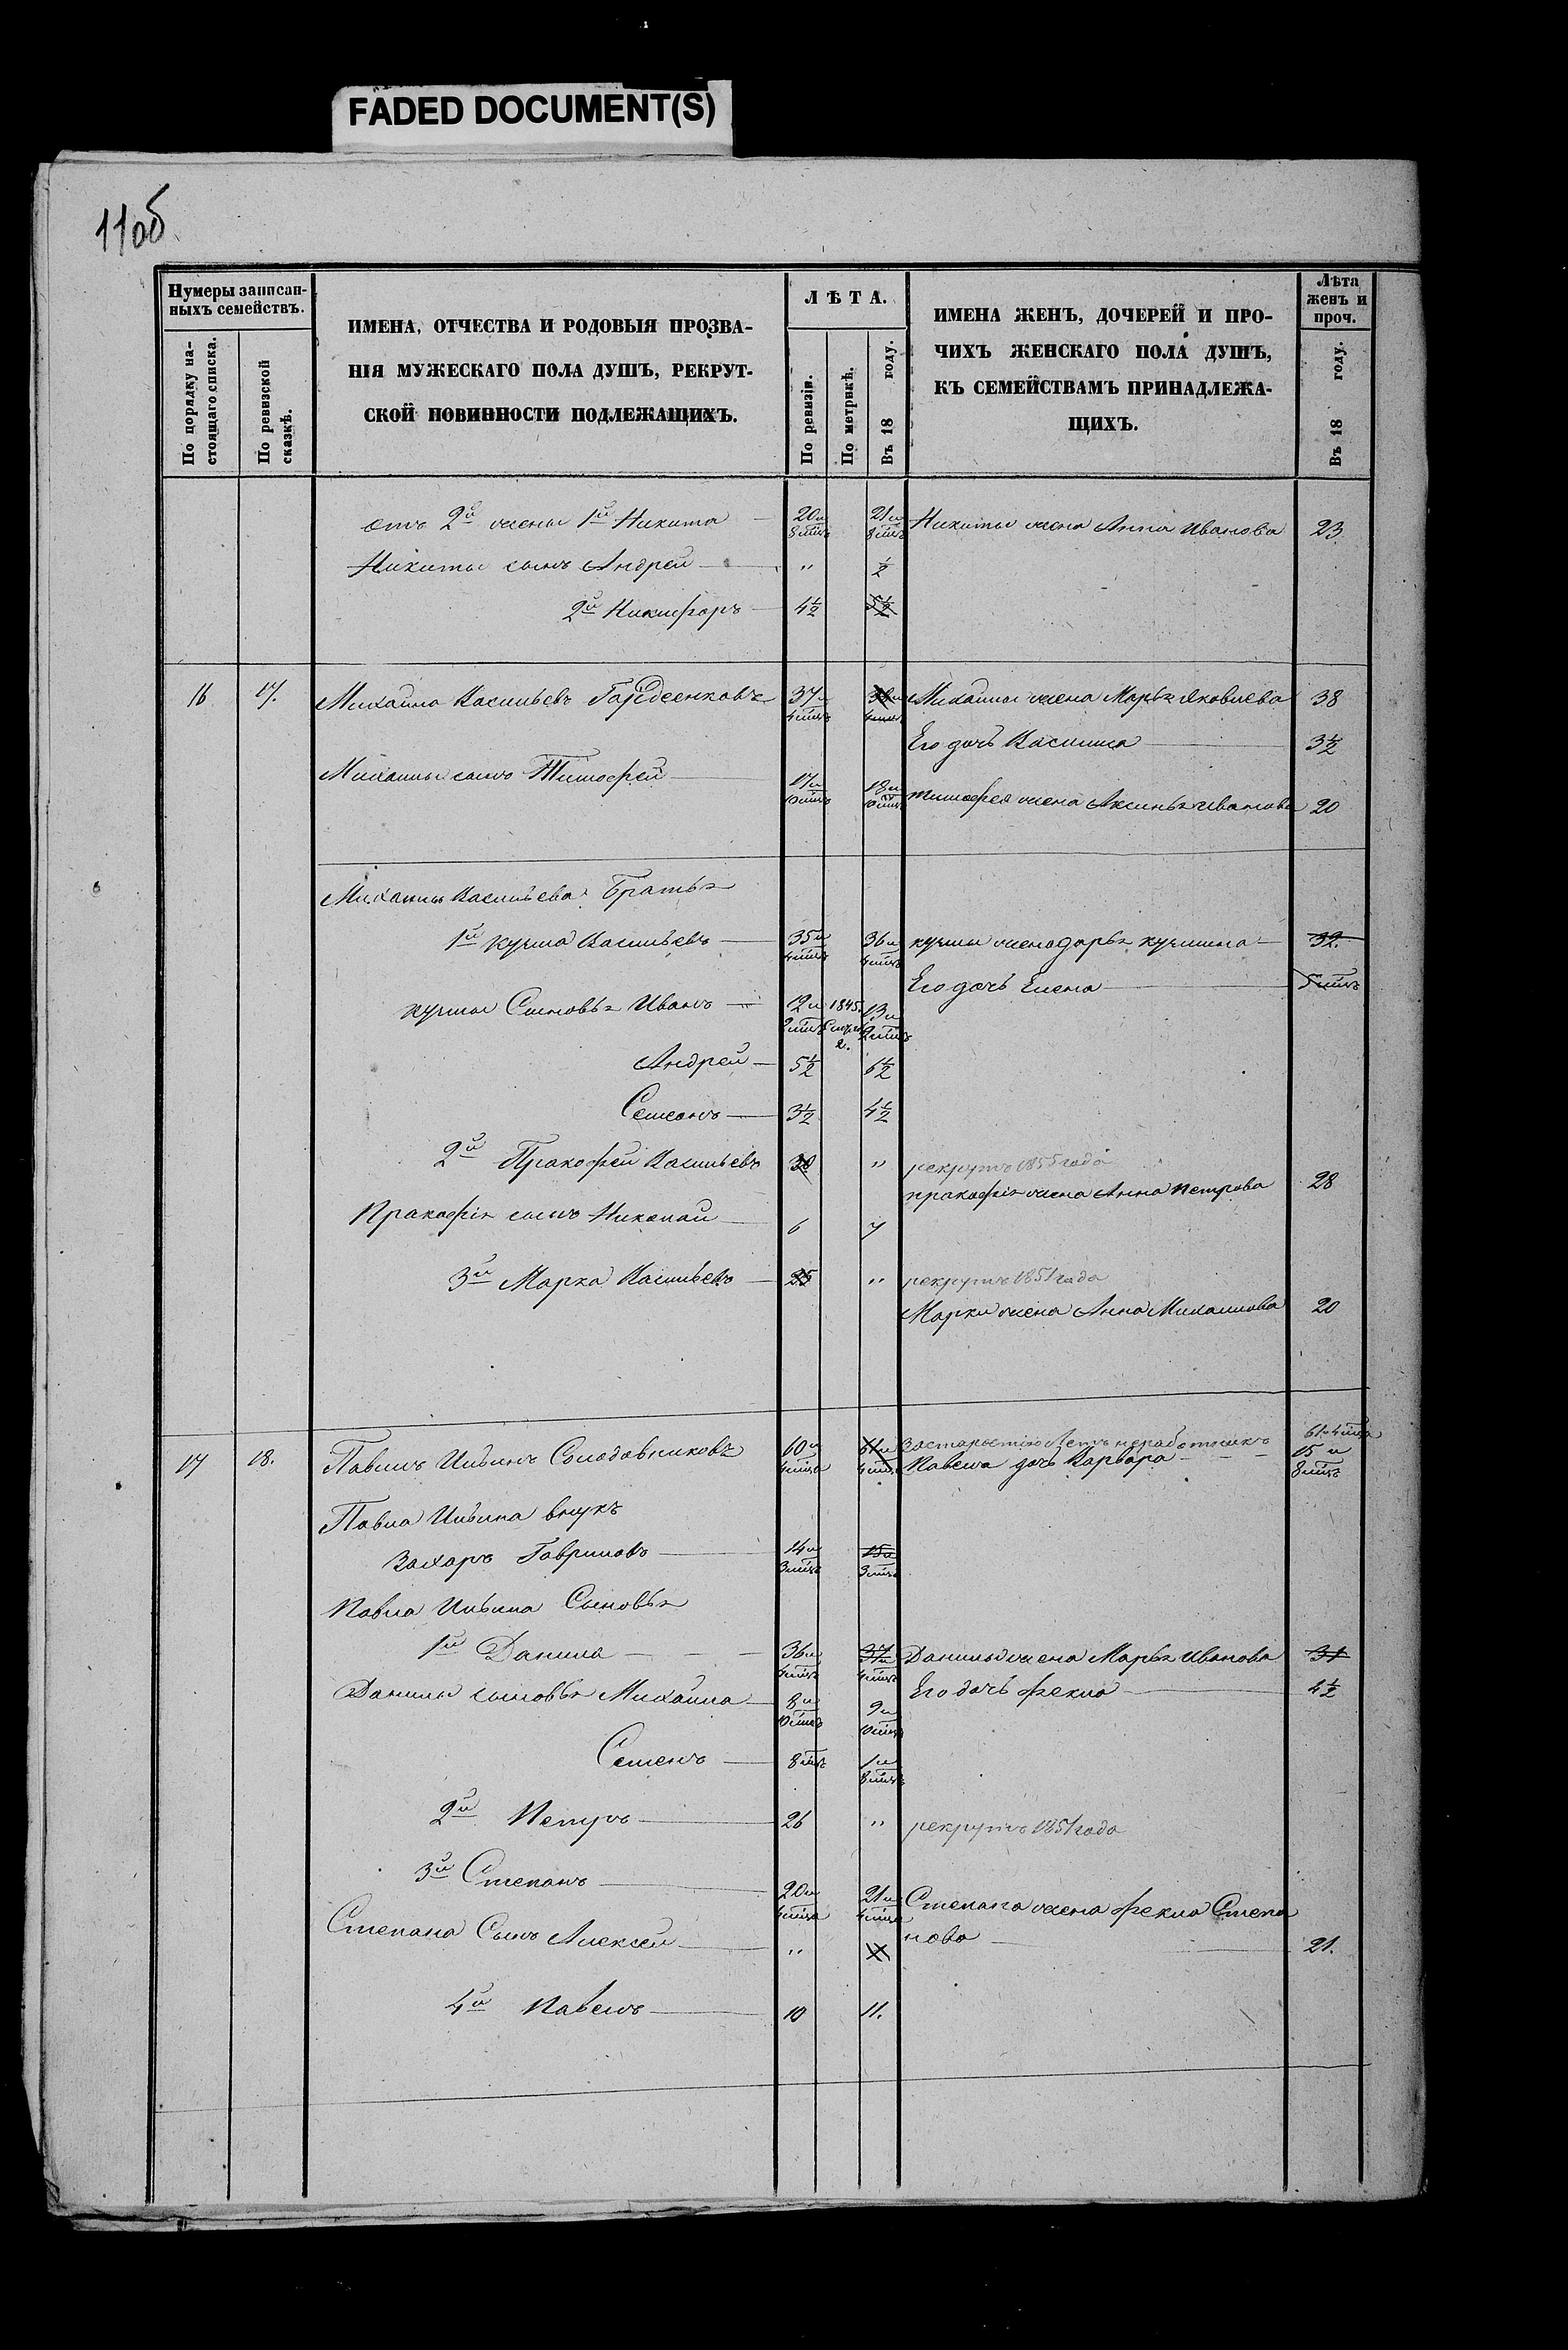 FADED DOCUMENT(S)
11об
Нумеры записан-
ныхъ семействъ.
По порядку на-
стоящаго списка.
По ревизской
сказкѣ.
ИМЕНА, ОТЧЕСТВА И РОДОВЫЯ ПРОЗВА-
НІЯ МУЖЕСКАГО ПОЛА ДУШЪ, РЕКРУТ-
СКОЙ ПОВИННОСТИ ПОДЛЕЖАЩИХЪ.
ЛѢТА.
По ревизіи.
По метрикѣ.
Въ 18 году.
ИМЕНА ЖЕНЪ, ДОЧЕРЕЙ И ПРО-
ЧИХЪ ЖЕНСКАГО ПОЛА ДУШЪ,
КЪ СЕМЕЙСТВАМЪ ПРИНАДЛЕЖА-
ЩИХЪ.
Лѣта
женъ и
проч.
Въ 18 году.
отъ 2й жены 1й Никита 20 и 8 мцъ 21 и 8 мцъ Никиты жена Анна Иванова 23
Никиты сынъ Андрей " ½
2й Никифоръ 4½ 5½
16 17. Михайла Васильевъ 37 и 4 мцъ 38 и 4 мцъ Михайлы жена Марья Яковлева 38
Его дочь Василиса 3½
Михайлы сынъ Тимофей 17 и 10 мцъ 18 и 10 мцъ Тимофея жена Аксинья Иванова 20
Михайлы Васильева Братья
1й Кузма Васильевъ 35 и 4 мцъ 36 и 4 мцъ Кузмы жена Дарья Кузмина 32.
Его дочь Елена 5 мцъ
Кузмы Сыновья Иванъ 12 и 2 мцъ 1845. 2. 13 и 2 мцъ
Андрей 5½ 6½
Семенъ 3½ 4½
2й Пракофей Васильевъ 30 " рекрутъ 1855 года
Пракофія жена Анна Петрова 28
Пракофія сынъ Николай 6 7
3й Марка Васильевъ 25 " рекрутъ 1851 года
Марки жена Анна Михайлова 20
17 18. Павелъ Ильинъ Солодовниковъ 60 и 4 мца 61 и 4 мца за старостію летъ неработникъ 61 и 4 мца
Павела дочь Варвара 15 и 8 мцъ
Павла Ильина внукъ
Захаръ Гавриловъ 14 и 3 мцъ 15 и 3 мцъ
Павла Ильина Сыновья
1й Данила 36 и 4 мцъ 37 и 4 мцъ Данилы жена Марья Иванова 31
Данилы сыновья Михайла 8 и 10 мцъ 9 и 10 мцъ Его дочь Фекла 4½
Семенъ 8 мцъ 1 и 8 мцъ
2й Петръ 26 " рекрутъ 1851 года
3й Степанъ 20 и 4 мца 21 и 4 мца Степана жена Фекла Степа
нова 21.
Степана Сынъ Алексей "
4й Павелъ 10 11.